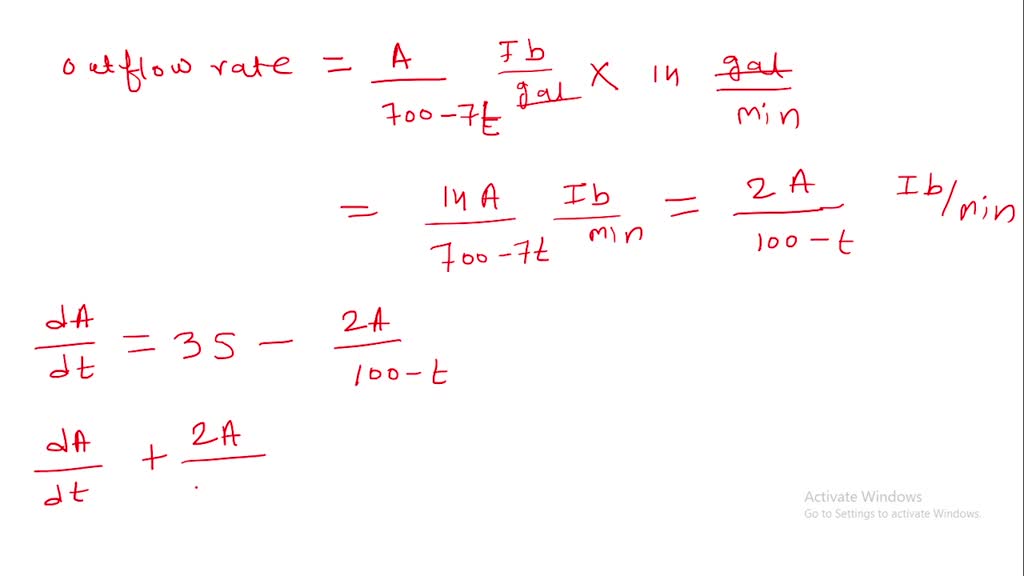 outflow rate = A / 700-7t Ib/gal X 14 gal/min
= 14A / 700-7t Ib/min = 2A / 100-t Ib/min
dA/dt = 35 - 2A / 100-t
dA/dt + 2A /
Activate Windows
Go to Settings to activate Windows.